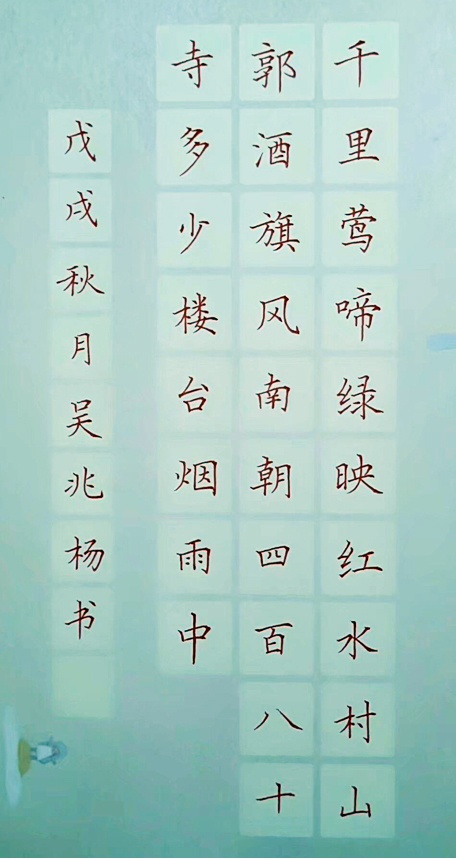 千里莺啼绿映红水村山
郭酒旗风南朝四百八十
寺多少楼台烟雨中
戊戌秋月吴兆杨书